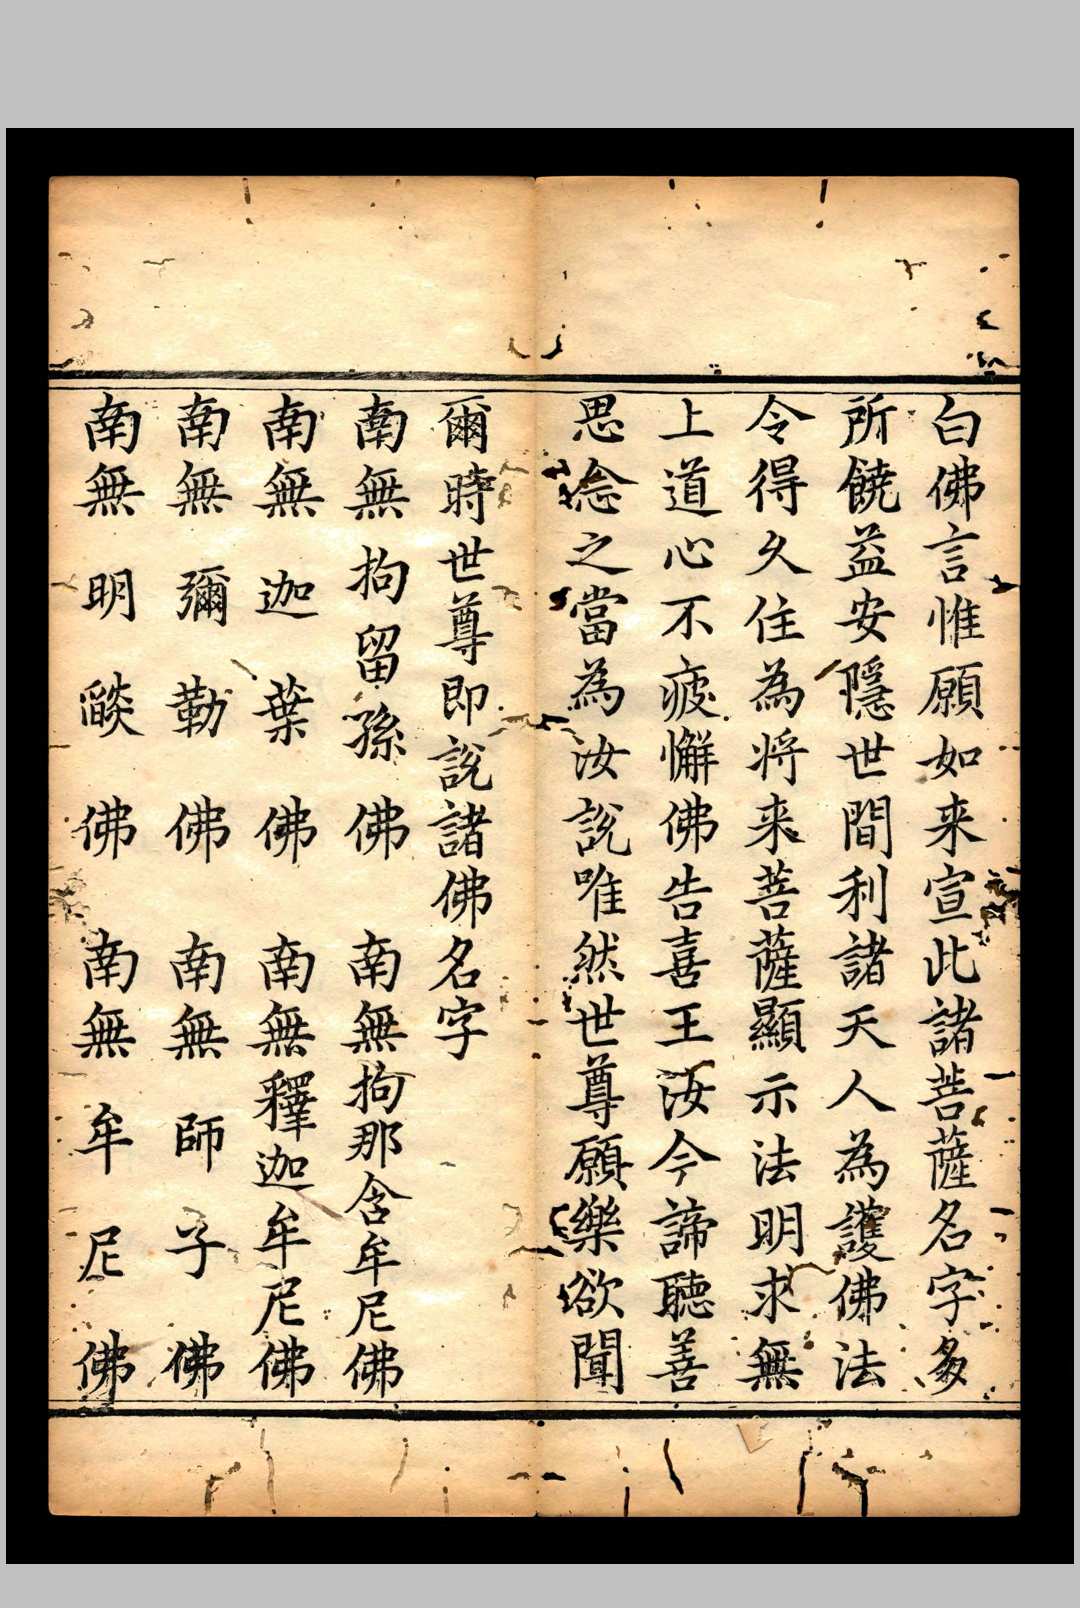 白佛言惟願如来宣此諸菩薩名字多
所饒益安隱世間利諸天人為護佛法
令得久住為將来菩薩顯示法明求無
上道心不疲懈佛告喜王汝今諦聽善
思念之當為汝說唯然世尊願樂欲聞
爾時世尊即說諸佛名字
南無拘留孫佛 南無拘那含牟尼佛
南無迦葉佛 南無釋迦牟尼佛
南無彌勒佛 南無師子佛
南無明燄佛 南無牟尼佛